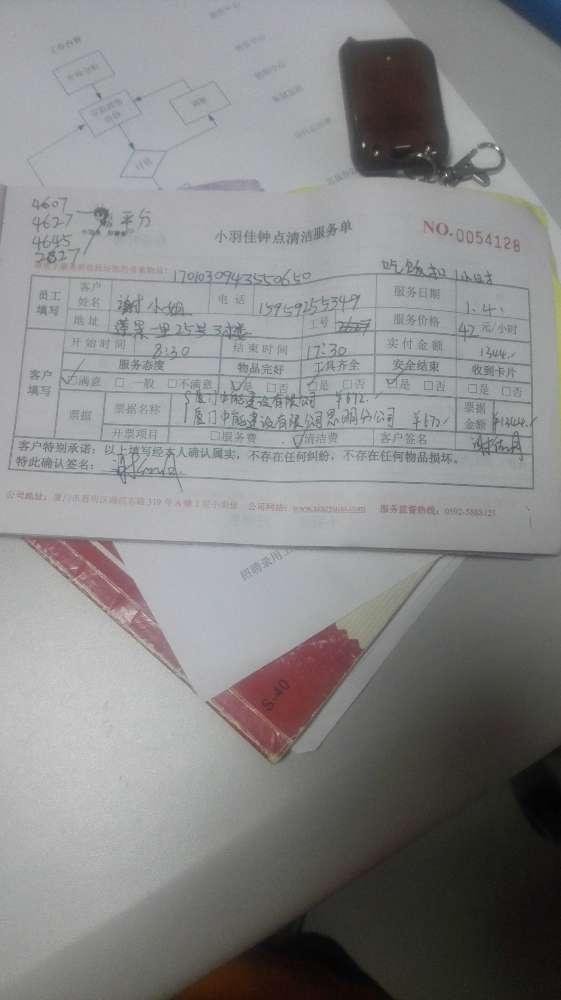 工作内容
4607
4627 平分
4645
2827
小羽佳钟点清洁服务单
NO.0054128
1701030943550650
吃饭扣1小时
员工填写 客户姓名 谢小姐 电话 15959255349 服务日期 1.4.
地址 莲景一里25号3楼 工号 服务价格 42元/小时
开始时间 8:30 结束时间 17:30 实付金额 1344.
客户填写 服务态度 物品完好 工具齐全 安全结束 收到卡片
☑满意 □一般 □不满意 ☑是 □否 ☑是 □否 ☑是 □否 □是 □否
票据 票据名称 厦门中能建设有限公司 ¥672. 票据金额 ¥1344.
厦门中能建设有限公司思明分公司 ¥672.
开票项目 □服务费 ☑清洁费 客户签名
客户特别承诺：以上填写经本人确认属实，不存在任何纠纷，不存在任何物品损坏。
特此确认签名：
公司地址：厦门市 319号A幢 公司网站： 服务监督热线：0592-5883125
招聘录用
S-40